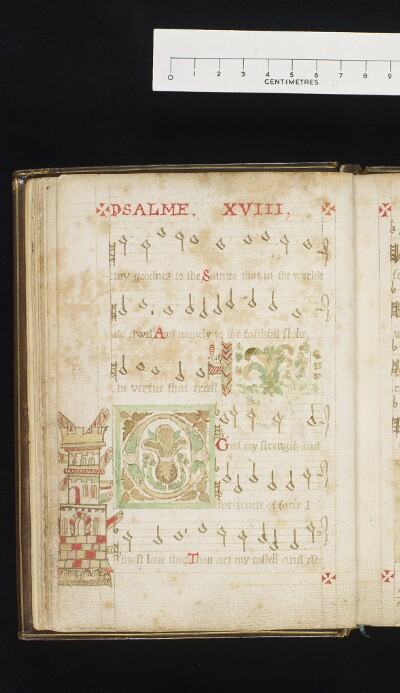 0 1 2 3 4 5 6 7 8 9
CENTIMETRES
PSALME. XVIII,
my goodnes to the Saintes that in the worlde
do dwel. And namely to the faithful flocke
in vertue that excell
O
God my strength and
fortitude of force I
most loue thee Thou art my castell and